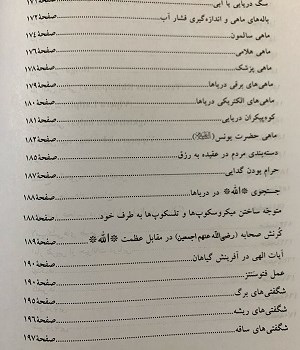 سگ دریایی یا آبی........صفحهٔ ۱۷۱
باله‌های ماهی و اندازه‌گیری فشار آب........صفحهٔ ۱۷۲
ماهی سالمون........صفحهٔ ۱۷۴
ماهی هلامی........صفحهٔ ۱۷۶
ماهی پزشک........صفحهٔ ۱۷۸
ماهی‌های برقی دریاها........صفحهٔ ۱۷۹
ماهی‌های الکتریکی دریاها........صفحهٔ ۱۸۰
کوه‌پیکران دریایی........صفحهٔ ۱۸۱
ماهی حضرت یونس()........صفحهٔ ۱۸۲
دسته‌بندی مردم در عقیده به رزق........صفحهٔ ۱۸۵
حرام بودن گدایی........صفحهٔ ۱۸۷
جستجوی ❊الله❊ در دریاها........صفحهٔ ۱۸۸
متوجّه ساختن میکروسکوپ‌ها و تلسکوپ‌ها به طرف خود........صفحهٔ ۱۸۸
کُرنش صحابه (رضی‌الله عنهم اجمعین) در مقابل عظمت ❊الله❊........صفحهٔ ۱۸۹
آیات الهی در آفرینش گیاهان........صفحهٔ ۱۹۰
عمل فتوسنتز........صفحهٔ ۱۹۰
شگفتی‌های برگ........صفحهٔ ۱۹۵
شگفتی‌های ریشه........صفحهٔ ۱۹۶
شگفتی‌های ساقه........صفحهٔ ۱۹۷